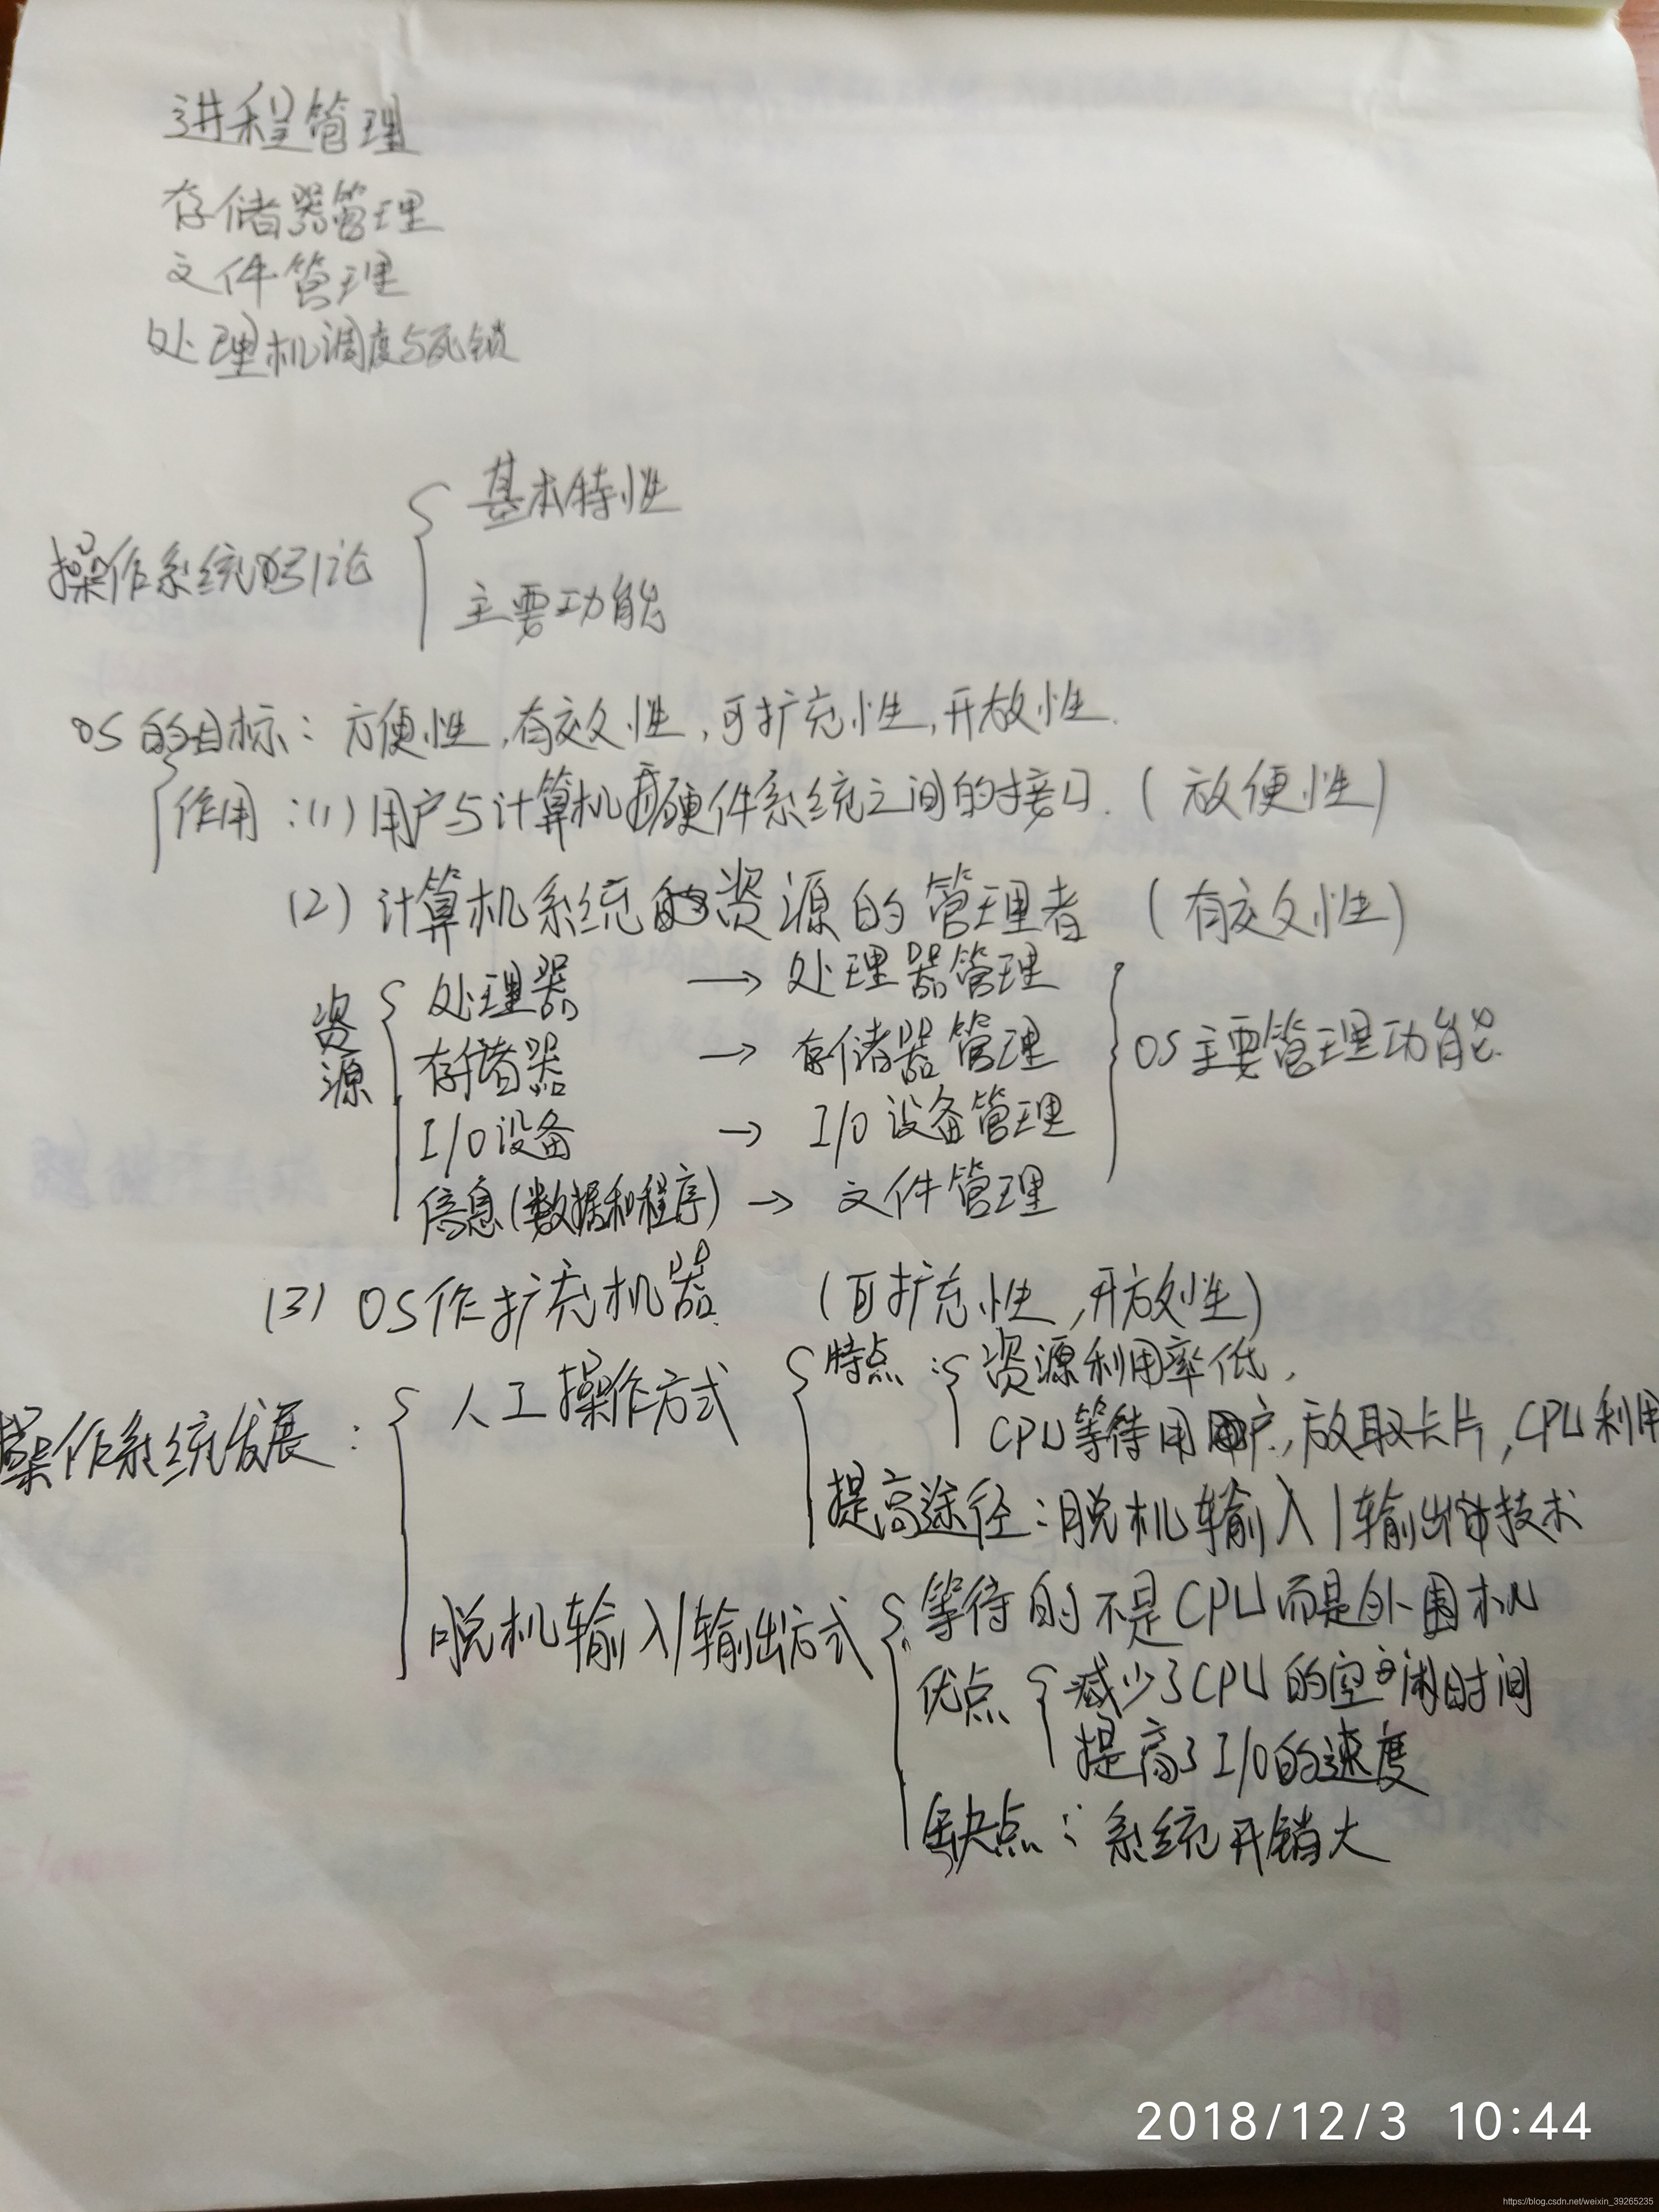 进程管理
存储器管理
文件管理
处理机调度与死锁
操作系统引论
基本特性
主要功能
OS的目标：方便性,有效性,可扩充性,开放性.
作用：(1)用户与计算机硬件系统之间的接口.(放便性)
(2)计算机系统资源的管理者 (有效性)
资源
处理器 → 处理器管理
存储器 → 存储器管理
I/O设备 → I/O设备管理
信息(数据和程序) → 文件管理
OS主要管理功能
(3) OS作扩充机器 (可扩充性,开放性)
操作系统发展：
人工操作方式
特点：资源利用率低,
CPU等待用户,放取卡片,CPU利用
提高途径：脱机输入/输出技术
脱机输入/输出方式
等待的不是CPU而是外围机
优点
减少了CPU的空闲时间
提高了I/O的速度
缺点：系统开销大
2018/12/3 10:44
https://blog.csdn.net/weixin_39265235